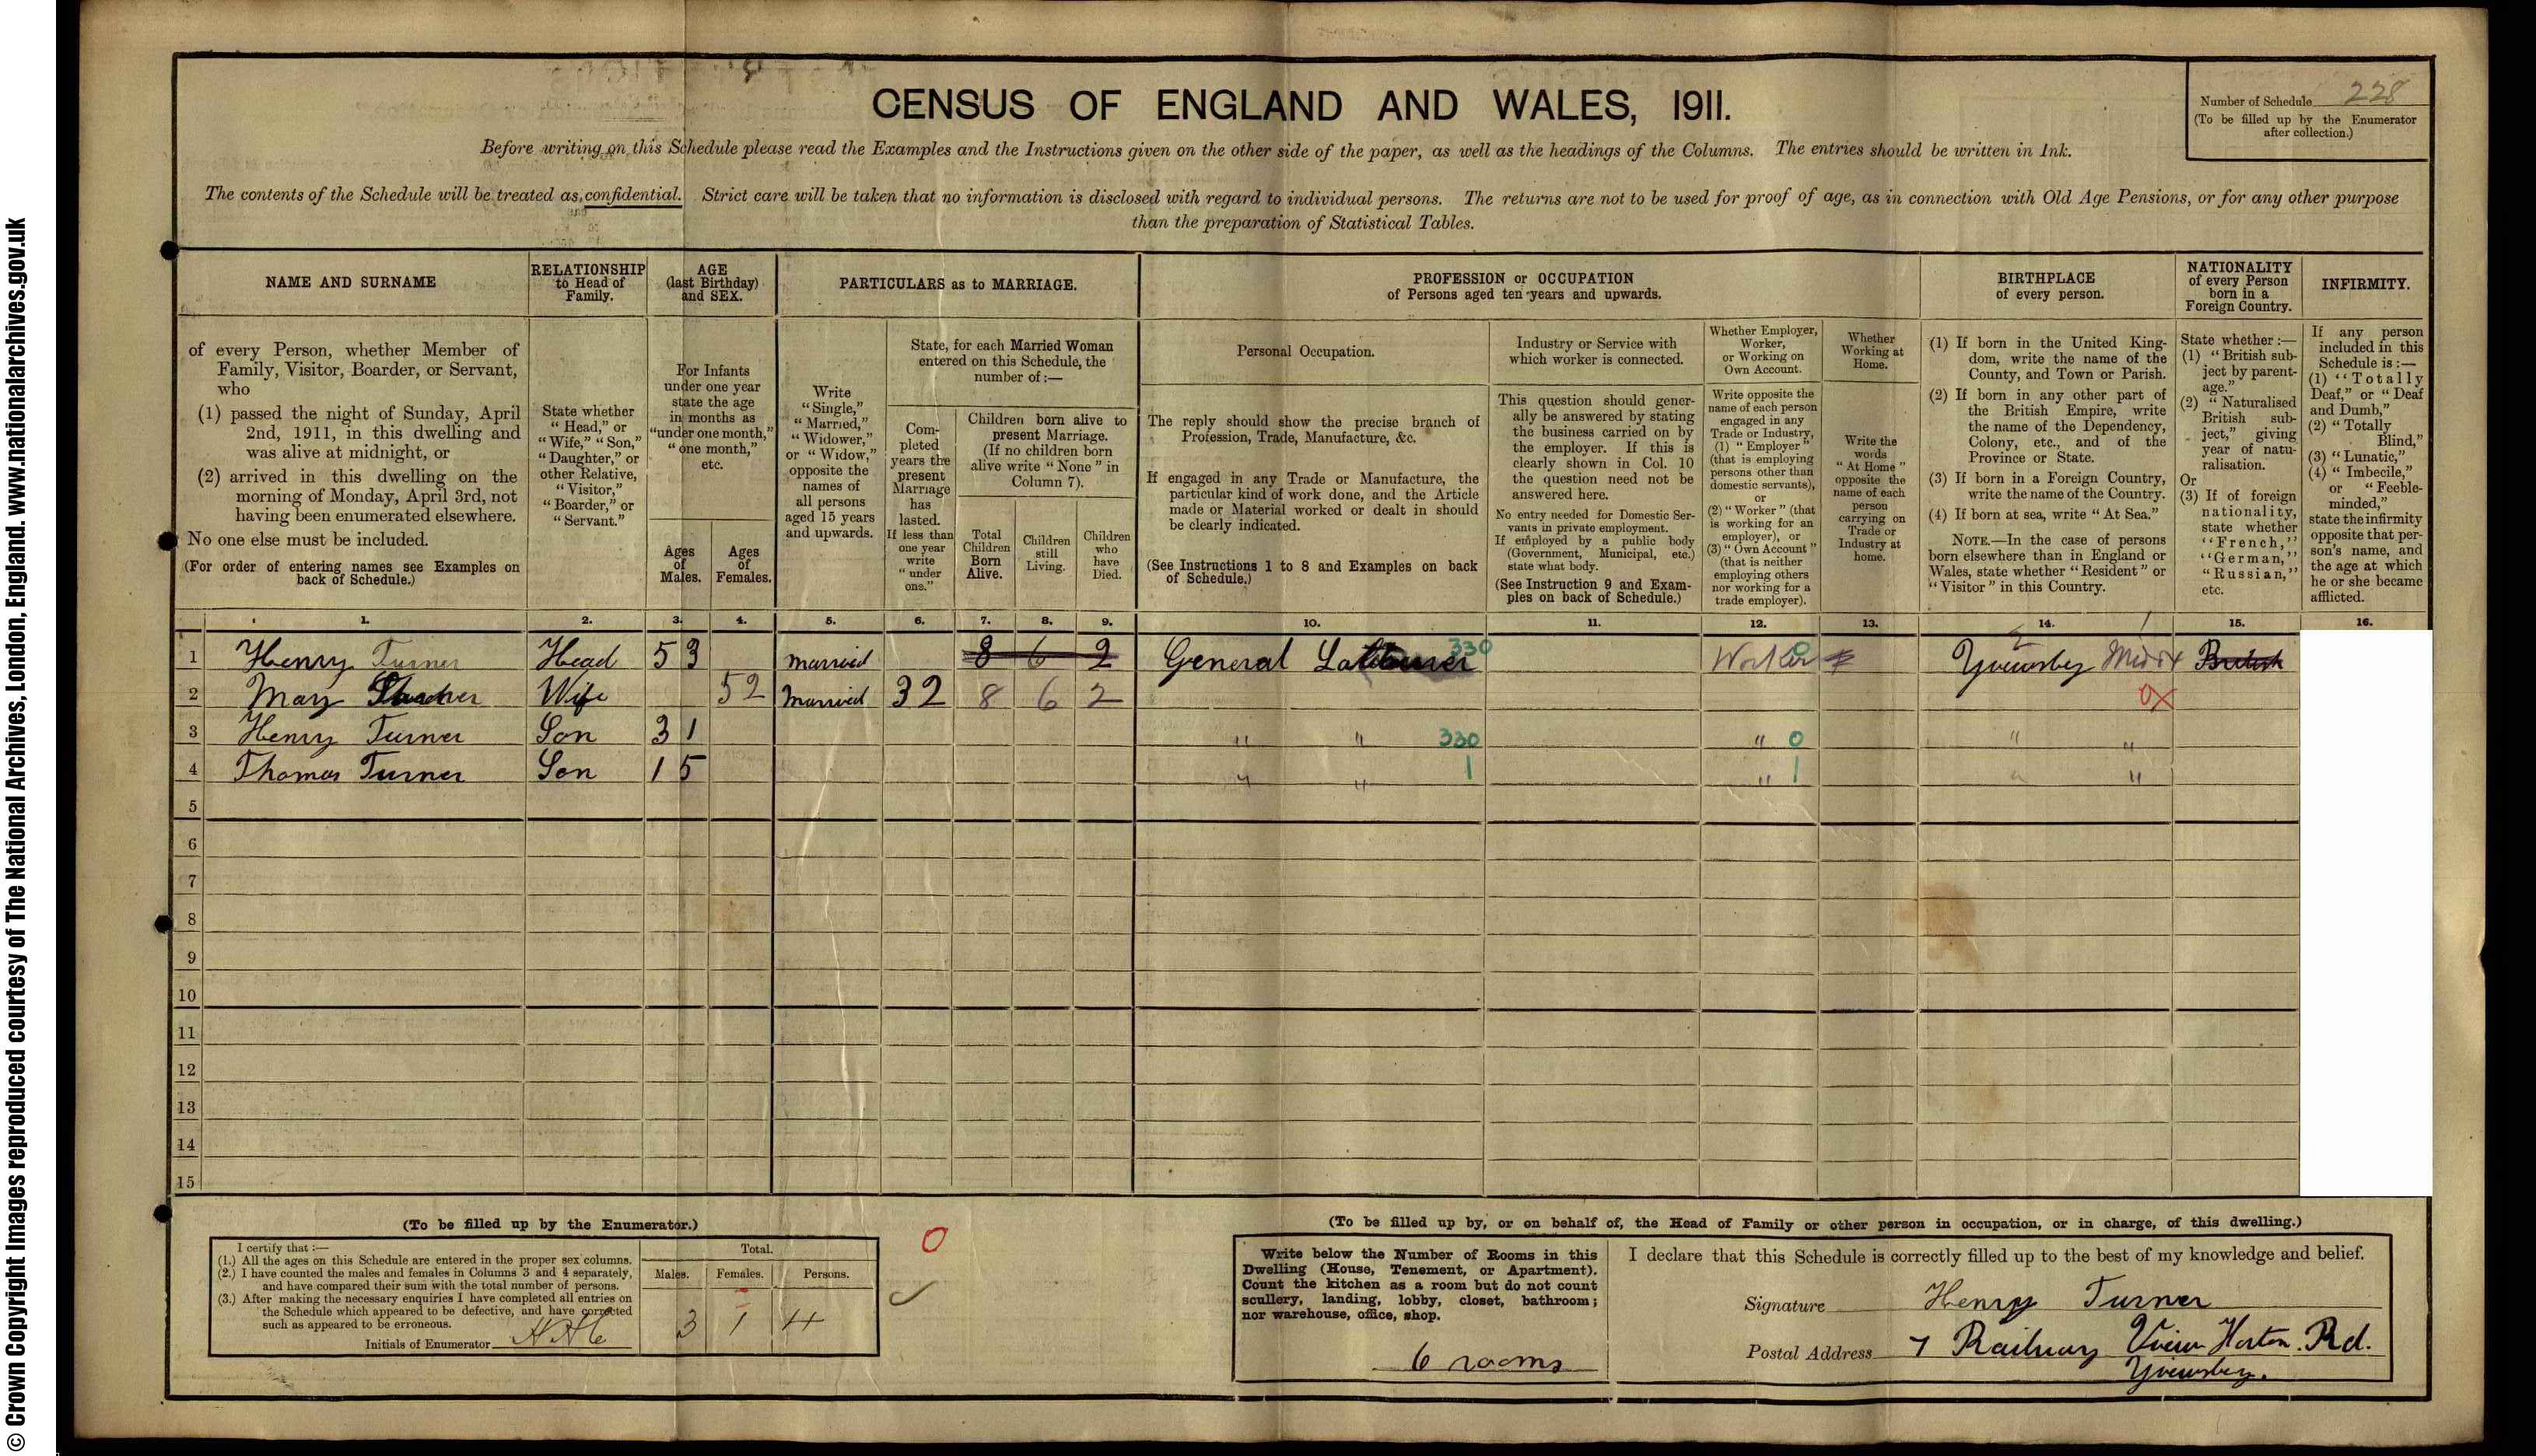 © Crown Copyright Images reproduced courtesy of The National Archives, London, England. www.nationalarchives.gov.uk
CENSUS OF ENGLAND AND WALES, 1911.
Number of Schedule 228
(To be filled up by the Enumerator after collection.)
Before writing on this Schedule please read the Examples and the Instructions given on the other side of the paper, as well as the headings of the Columns. The entries should be written in Ink.
The contents of the Schedule will be treated as confidential. Strict care will be taken that no information is disclosed with regard to individual persons. The returns are not to be used for proof of age, as in connection with Old Age Pensions, or for any other purpose
than the preparation of Statistical Tables.
NAME AND SURNAME
of every Person, whether Member of
Family, Visitor, Boarder, or Servant,
who
(1) passed the night of Sunday, April
2nd, 1911, in this dwelling and
was alive at midnight, or
(2) arrived in this dwelling on the
morning of Monday, April 3rd, not
having been enumerated elsewhere.
No one else must be included.
(For order of entering names see Examples on
back of Schedule.)
RELATIONSHIP
to Head of
Family.
State whether
"Head," or
"Wife," "Son,"
"Daughter," or
other Relative,
"Visitor,"
"Boarder," or
"Servant."
AGE
(last Birthday)
and SEX.
For Infants
under one year
state the age
in months as
"under one month,"
"one month,"
etc.
Ages
of
Males.
Ages
of
Females.
PARTICULARS as to MARRIAGE.
Write
"Single,"
"Married,"
"Widower,"
or "Widow,"
opposite the
names of
all persons
aged 15 years
and upwards.
State, for each Married Woman
entered on this Schedule, the
number of:—
Com-
pleted
years the
present
Marriage
has
lasted.
If less than
one year
write
"under
one."
Children born alive to
present Marriage.
(If no children born
alive write "None" in
Column 7).
Total
Children
Born
Alive.
Children
still
Living.
Children
who
have
Died.
PROFESSION or OCCUPATION
of Persons aged ten years and upwards.
Personal Occupation.
The reply should show the precise branch of
Profession, Trade, Manufacture, &c.
If engaged in any Trade or Manufacture, the
particular kind of work done, and the Article
made or Material worked or dealt in should
be clearly indicated.
(See Instructions 1 to 8 and Examples on back
of Schedule.)
Industry or Service with
which worker is connected.
This question should gener-
ally be answered by stating
the business carried on by
the employer. If this is
clearly shown in Col. 10
the question need not be
answered here.
No entry needed for Domestic Ser-
vants in private employment.
If employed by a public body
(Government, Municipal, etc.)
state what body.
(See Instruction 9 and Exam-
ples on back of Schedule.)
Whether Employer,
Worker,
or Working on
Own Account.
Write opposite the
name of each person
engaged in any
Trade or Industry,
(1) "Employer"
(that is employing
persons other than
domestic servants),
or
(2) "Worker" (that
is working for an
employer), or
(3) "Own Account"
(that is neither
employing others
nor working for a
trade employer).
Whether
Working at
Home.
Write the
words
"At Home"
opposite the
name of each
person
carrying on
Trade or
Industry at
home.
BIRTHPLACE
of every person.
(1) If born in the United King-
dom, write the name of the
County, and Town or Parish.
(2) If born in any other part of
the British Empire, write
the name of the Dependency,
Colony, etc., and of the
Province or State.
(3) If born in a Foreign Country,
write the name of the Country.
(4) If born at sea, write "At Sea."
NOTE.—In the case of persons
born elsewhere than in England or
Wales, state whether "Resident" or
"Visitor" in this Country.
NATIONALITY
of every Person
born in a
Foreign Country.
State whether:—
(1) "British sub-
ject by parent-
age."
(2) "Naturalised
British sub-
ject," giving
year of natu-
ralisation.
Or
(3) If of foreign
nationality,
state whether
"French,"
"German,"
"Russian,"
etc.
INFIRMITY.
If any person
included in this
Schedule is:—
(1) "Totally
Deaf," or "Deaf
and Dumb,"
(2) "Totally
Blind,"
(3) "Lunatic,"
(4) "Imbecile,"
or "Feeble-
minded,"
state the infirmity
opposite that per-
son's name, and
the age at which
he or she became
afflicted.
1. 2. 3. 4. 5. 6. 7. 8. 9. 10. 11. 12. 13. 14. 15. 16.
1 Henry Turner Head 53 Married 8 6 2 General Labourer 330 Worker 0 Yiewsley Middx British
2 Mary Turner Wife 52 Married 32 8 6 2 0X
3 Henry Turner Son 31 " " 330 " 0 " "
4 Thomas Turner Son 15 " " 1 " 1 " "
5
6
7
8
9
10
11
12
13
14
15
(To be filled up by the Enumerator.)
I certify that:—
(1.) All the ages on this Schedule are entered in the proper sex columns.
(2.) I have counted the males and females in Columns 3 and 4 separately,
and have compared their sum with the total number of persons.
(3.) After making the necessary enquiries I have completed all entries on
the Schedule which appeared to be defective, and have corrected
such as appeared to be erroneous.
Initials of Enumerator
Total.
Males. Females. Persons.
3 1 4
0
(To be filled up by, or on behalf of, the Head of Family or other person in occupation, or in charge, of this dwelling.)
Write below the Number of Rooms in this
Dwelling (House, Tenement, or Apartment).
Count the kitchen as a room but do not count
scullery, landing, lobby, closet, bathroom;
nor warehouse, office, shop.
6 rooms
I declare that this Schedule is correctly filled up to the best of my knowledge and belief.
Signature Henry Turner
Postal Address 7 Railway View Horton Rd.
Yiewsley.